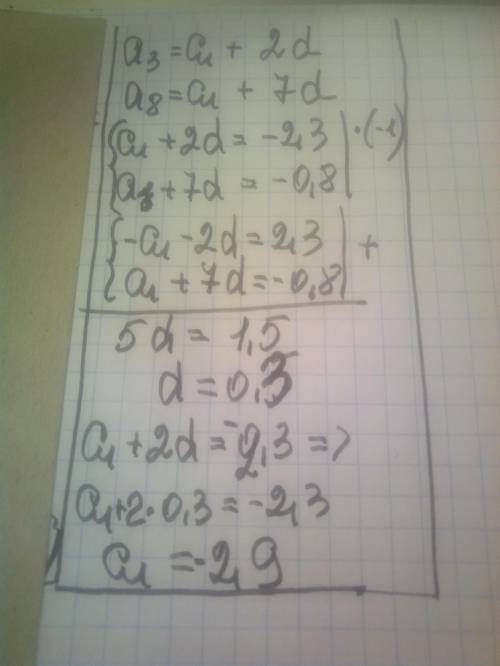 a₃ = a₁ + 2d
a₈ = a₁ + 7d
{a₁ + 2d = -2,3 | · (-1)
{a₁ + 7d = -0,8 |
{-a₁ - 2d = 2,3 | +
{a₁ + 7d = -0,8 |
5d = 1,5
d = 0,3
a₁ + 2d = -2,3 =>
a₁ + 2 · 0,3 = -2,3
a₁ = -2,9